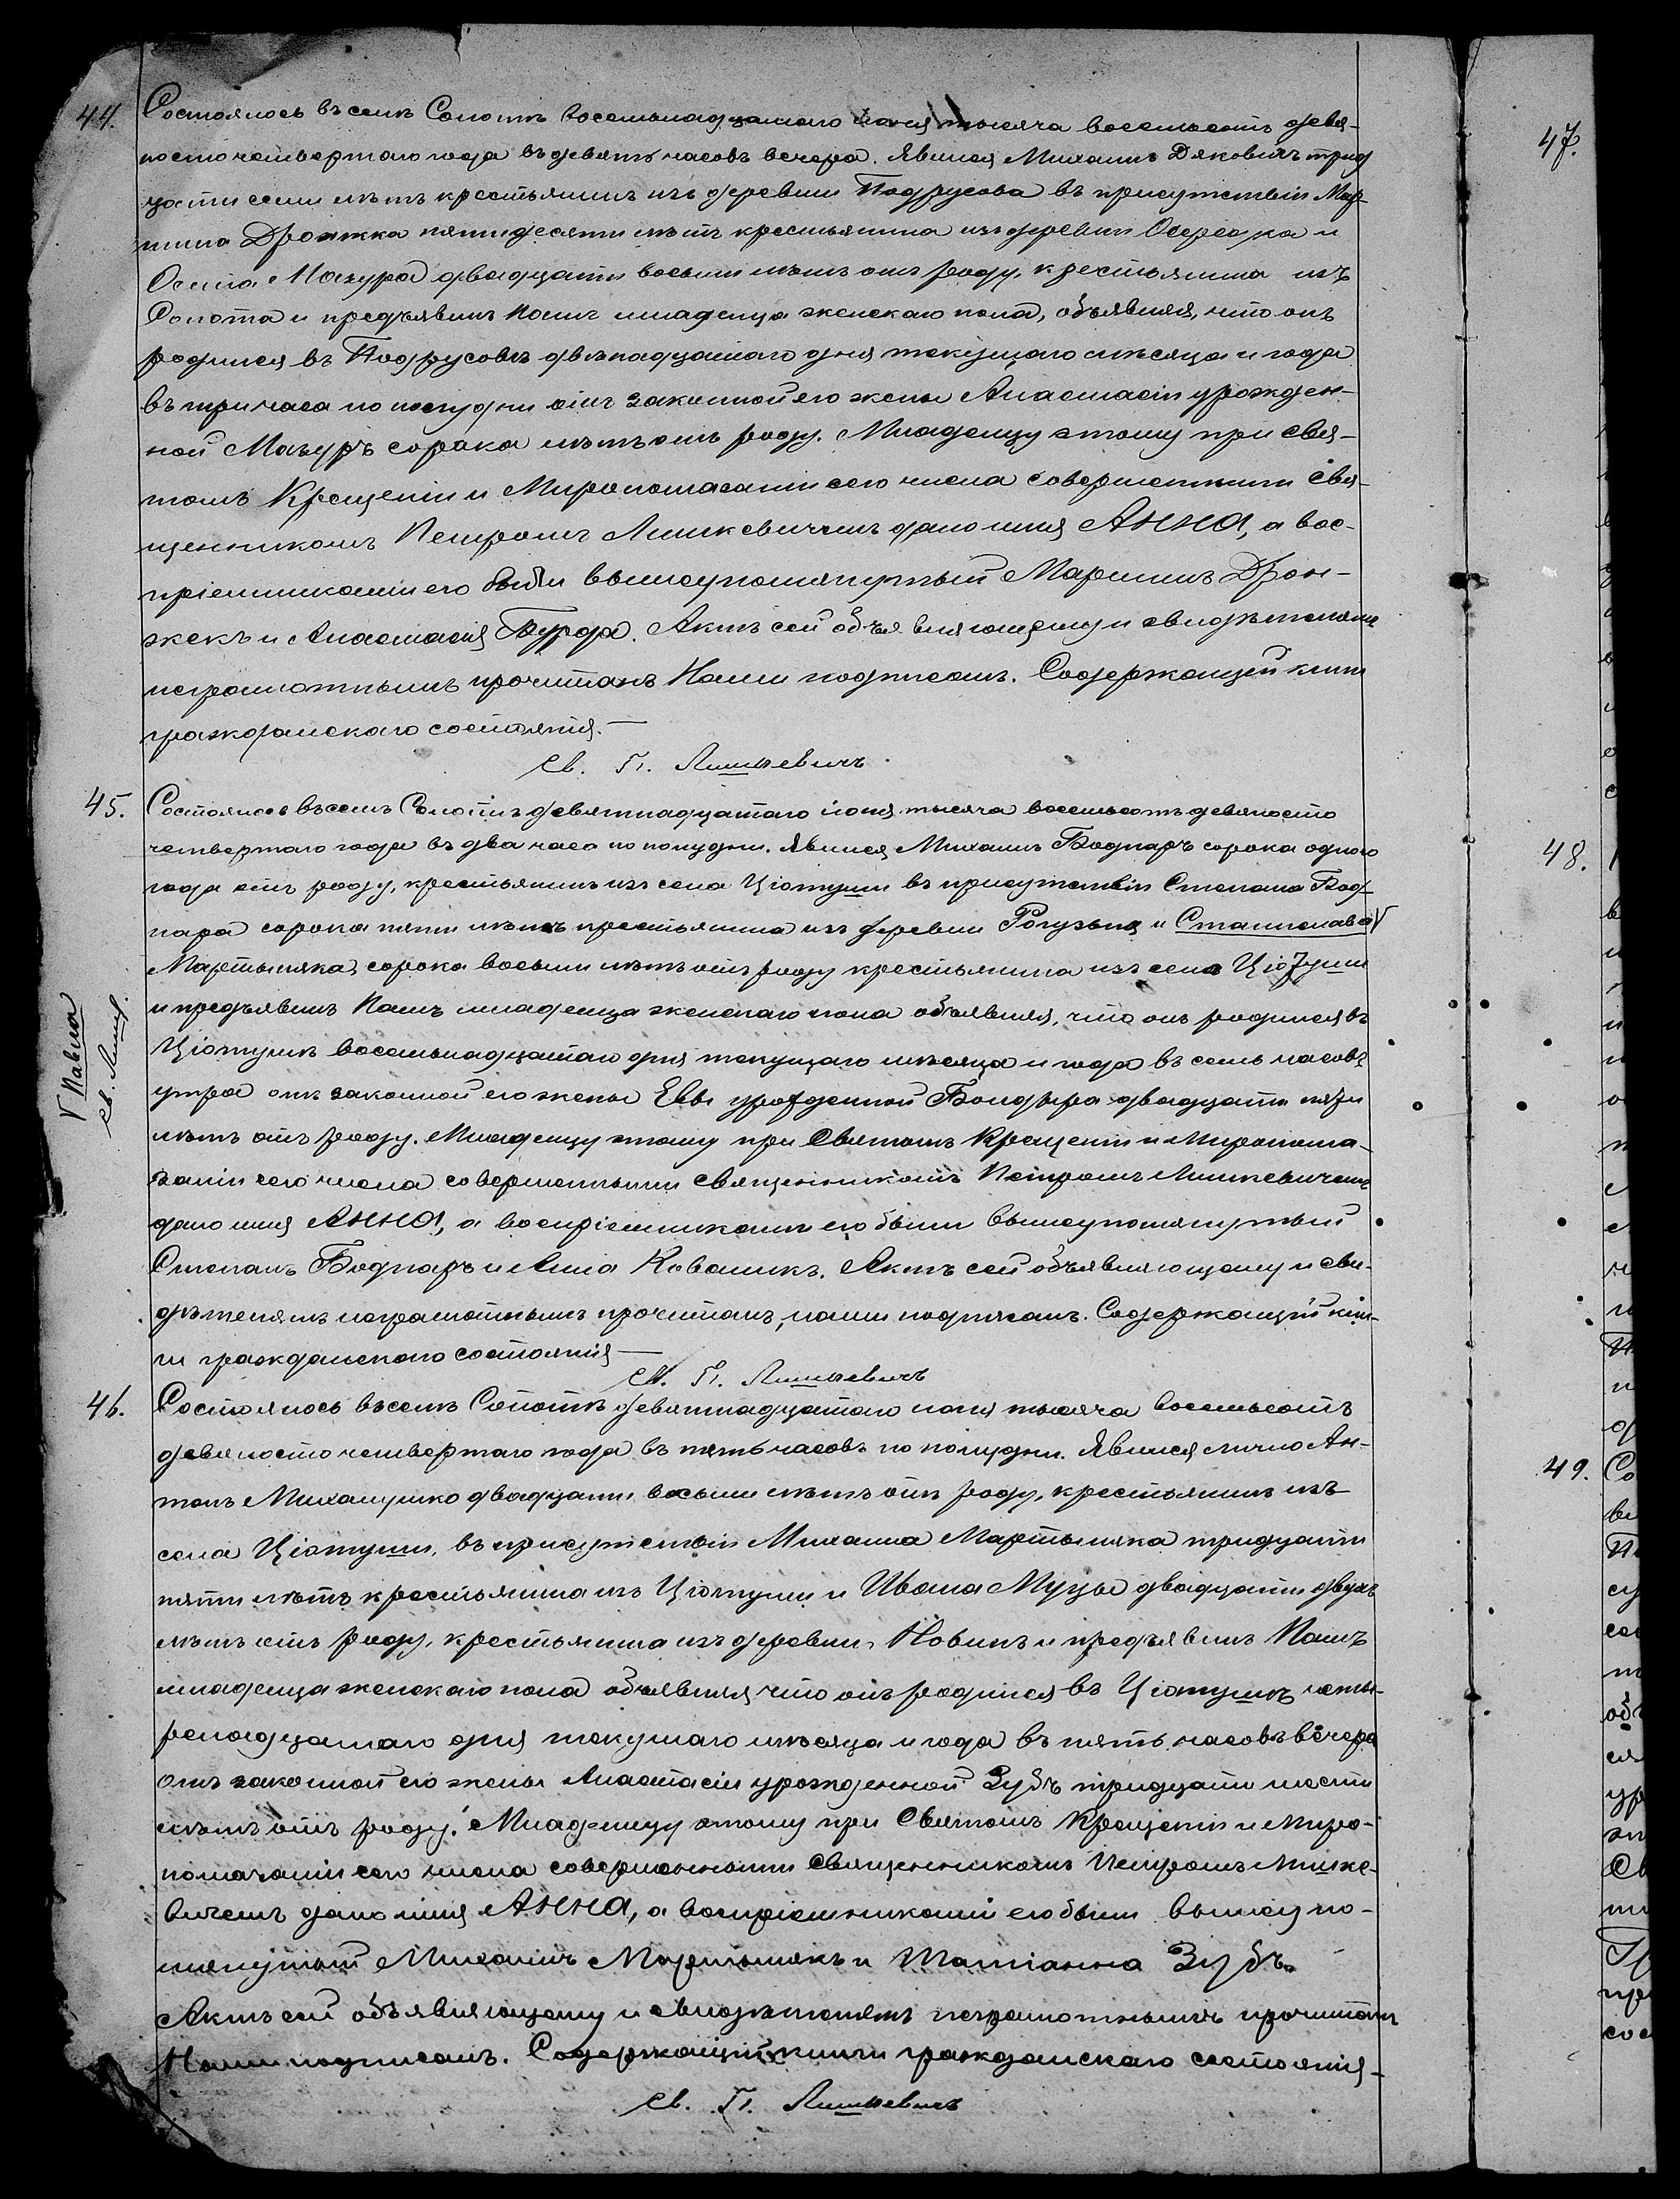 44. Состоялось въ селѣ Сопотѣ восемьнадцатаго Іюня тысяча восемьсотъ девя-
носто четвертаго года въ девять часовъ вечера. Явился Михаилъ Дяковичъ трид-
цати семи лѣтъ крестьянинъ изъ деревни Подрусова въ присутствіи Мар-
тина Дронжка пятидесяти лѣтъ крестьянина изъ деревни Осередка и
Осипа Мазура двадцати восьми лѣтъ отъ роду, крестьянина изъ
Сопота и предъявилъ Намъ младенца женскаго пола, объявляя, что онъ
родился въ Подрусовѣ двѣнадцатаго дня текущаго мѣсяца и года
въ три часа по полудни отъ законной его жены Анастасіи урожден-
ной Мазуръ сорока лѣтъ отъ роду. Младенцу этому при Свя-
томъ Крещеніи и Миропомазаніи сего числа совершенныхъ Свя-
щенникомъ Петромъ Лишкевичемъ дано имя АННА, а вос-
пріемниками его были вышеупомянутый Мартинъ Дрон-
жекъ и Анастасія Бурда. Актъ сей объявляющему и свидѣтелямъ
неграмотнымъ прочитанъ Нами подписанъ. Содержащій книги
гражданскаго состоянія.—
Св. П. Лишкевичъ.
45. Состоялось въ селѣ Сопотѣ девятнадцатаго іюня тысяча восемьсотъ девяносто
четвертаго года въ два часа по полудни. Явился Михаилъ Боднаръ сорока одного
года отъ роду, крестьянинъ изъ села Ціотуши въ присутствіи Степана Бод-
нара сорока пяти лѣтъ крестьянина изъ деревни Рогузьна и Станислава V
Мартыняка, сорока восьми лѣтъ отъ роду крестьянина изъ села Ціотуши
и предъявилъ Намъ младенца женскаго пола объявляя, что онъ родился въ
Ціотушѣ восемьнадцатаго дня текущаго мѣсяца и года въ семь часовъ
утра отъ законной его жены Евы урожденной Бондыра двадцати пяти
лѣтъ отъ роду. Младенцу этому при Святомъ Крещеніи и Миропома-
заніи сего числа совершенными Священникомъ Петромъ Лишкевичемъ
дано имя АННА, а воспріемниками его были вышеупомянутый
Степанъ Боднаръ и Анна Коваликъ. Актъ сей объявляющему и сви-
дѣтелямъ неграмотнымъ прочитанъ, нами подписанъ. Содержащій кни-
ги гражданскаго состоянія—
Св. П. Лишкевичъ
V Павла
Св. Лишк.
46. Состоялось въ селѣ Сопотѣ девятнадцатаго іюня тысяча восемьсотъ
девяносто четвертаго года въ пять часовъ по полудни. Явился лично Ан-
тонъ Михалушко двадцати восьми лѣтъ отъ роду, крестьянинъ изъ
села Ціотуши, въ присутствіи Михаила Мартыняка тридцати
пяти лѣтъ крестьянина изъ Ціотуши и Ивана Муцы двадцати двухъ
лѣтъ отъ роду, крестьянина изъ деревни Новинъ и предъявилъ Намъ
младенца женскаго пола объявляя что онъ родился въ Ціотушѣ четы-
ренадцатаго дня текущаго мѣсяца и года въ пять часовъ вечера
отъ законной его жены Анастасіи урожденной Зубъ тридцати шести
лѣтъ отъ роду. Младенцу этому при Святомъ Крещеніи и Миро-
помазаніи сего числа совершенными Священникомъ Петромъ Лишке-
вичемъ дано имя АННА, а воспріемниками его были вышеупо-
мянутый Михаилъ Мартынякъ и Татіанна Зубъ.
Актъ сей объявляющему и свидѣтелямъ неграмотнымъ прочитанъ
Нами подписанъ. Содержащій книги гражданскаго состоянія—
Св. П. Лишкевичъ
47.
48.
49.